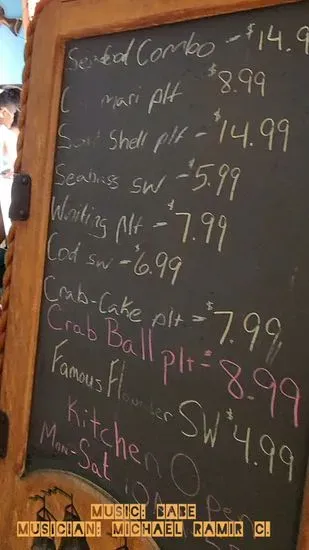 Seafood Combo - $14.9
Calamari plt $8.99
Soft Shell plt - $14.99
Seabass sw - $5.99
Whiting plt - $7.99
Cod sw - $6.99
Crab-Cake plt = $7.99
Crab Ball plt = $8.99
Famous Flounder SW $4.99
Kitchen Open
Mon-Sat
MUSIC: BABE
MUSICIAN: MICHAEL RAMIR C.